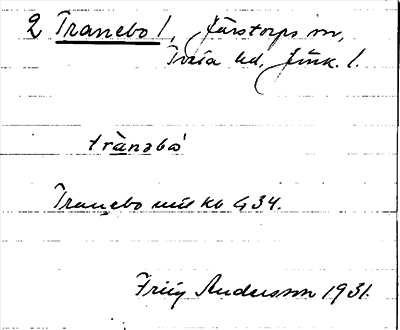 2 Tranebo 1, Järstorps sn,
Tveta hd, Jönk. l.
trànəbó
Tranebo mil kb G 34.
Frity Andersson 1931.